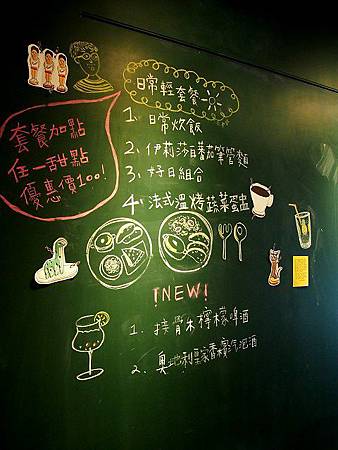 套餐加點
任一甜點
優惠價100!
日常輕套餐
1. 日常炊飯
2. 伊莉莎白蕃茄筆管麵
3. 好日組合
4. 法式溫烤蔬菜蛋盅
NEW!
1. 接骨木檸檬啤酒
2. 奧地利皇家香檳气泡酒